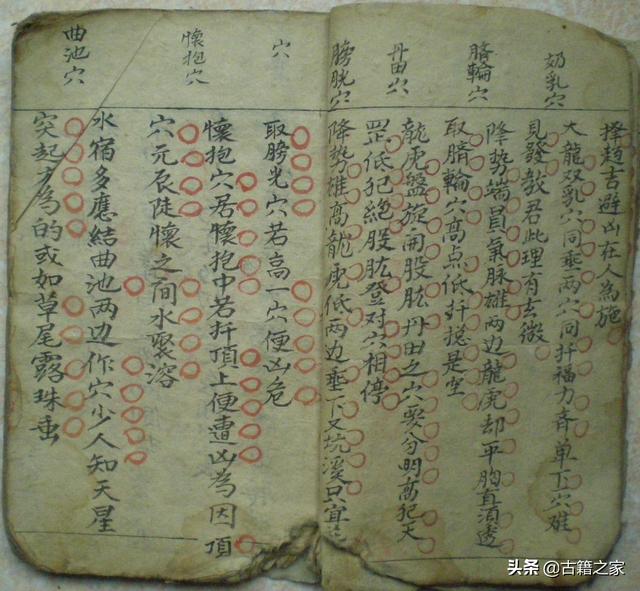 擇趋吉避凶在人為施
奶乳穴
大龍双乳穴同垂两穴同扦福力齐单下穴难
見發教君此理有玄微
臍輪穴
降势端員氣脉雄两边龍虎却平胸直須透
取臍輪穴高点低扦捴是空
丹田穴
龍虎盤旋開股肱丹田之穴要分明高犯天
罡低犯絕股肱登对穴相停
膀胱穴
降势雄高龍虎低两边垂下又坑溪只宜
穴
取膀光穴若高一穴便凶危
懷抱穴
懷抱穴居懷抱中若扦頂上便遭凶為因頂
穴元辰陡懷之间水聚溶
曲池穴
水宿多應結曲池两边作穴少人知天星
突起方為的或如草尾露珠垂
头条 @古籍之家